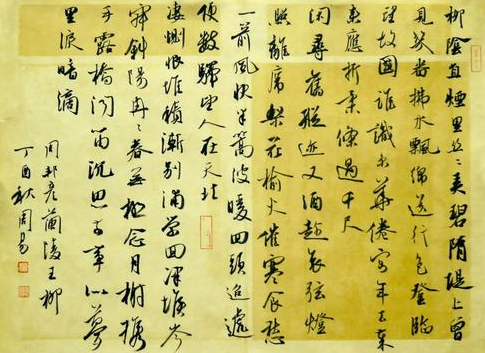 柳陰直煙里絲絲弄碧隋堤上曾
見幾番拂水飄綿送行色登臨
望故國誰識京華倦客年去歲
來應折柔條過千尺
閑尋舊蹤迹又酒趁哀弦燈
照離席梨花榆火催寒食愁
一箭風快半篙波暖回頭迢遞
便數驛望人在天北
凄惻恨堆積漸別浦縈回津堠岑
寂斜陽冉冉春無極念月榭攜
手露橋聞笛沉思前事似夢
里淚暗滴
周邦彥蘭陵王柳
丁酉秋周易